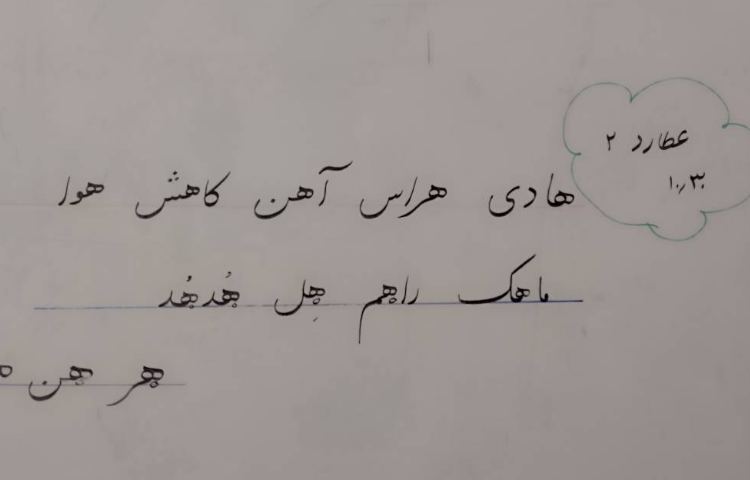 عطارد ۲
۱۰٫۳۰
هادی هراس آهن کاهش هوا
ماهک راهم هِل هُدهُد
هر هن